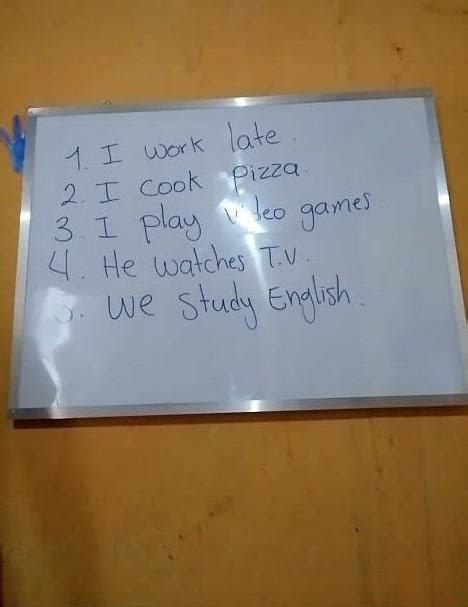 1. I work late.
2. I cook pizza.
3. I play video games.
4. He watches T.V.
5. We study English.